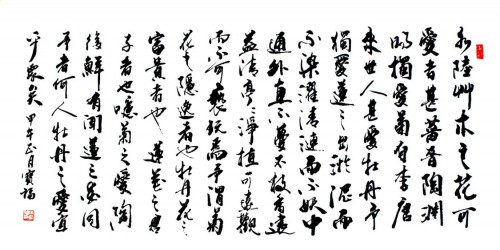 水陸艸木之花可
愛者甚蕃晉陶淵
明獨愛菊自李唐
來世人甚愛牡丹予
獨愛蓮之出淤泥而
不染濯清漣而不妖中
通外直不蔓不枝香遠
益清亭亭淨植可遠觀
而不可褻玩焉予謂菊
花之隱逸者也牡丹花之
富貴者也蓮花之君
子者也噫菊之愛陶
後鮮有聞蓮之愛同
予者何人牡丹之愛宜
乎眾矣 甲午正月寶